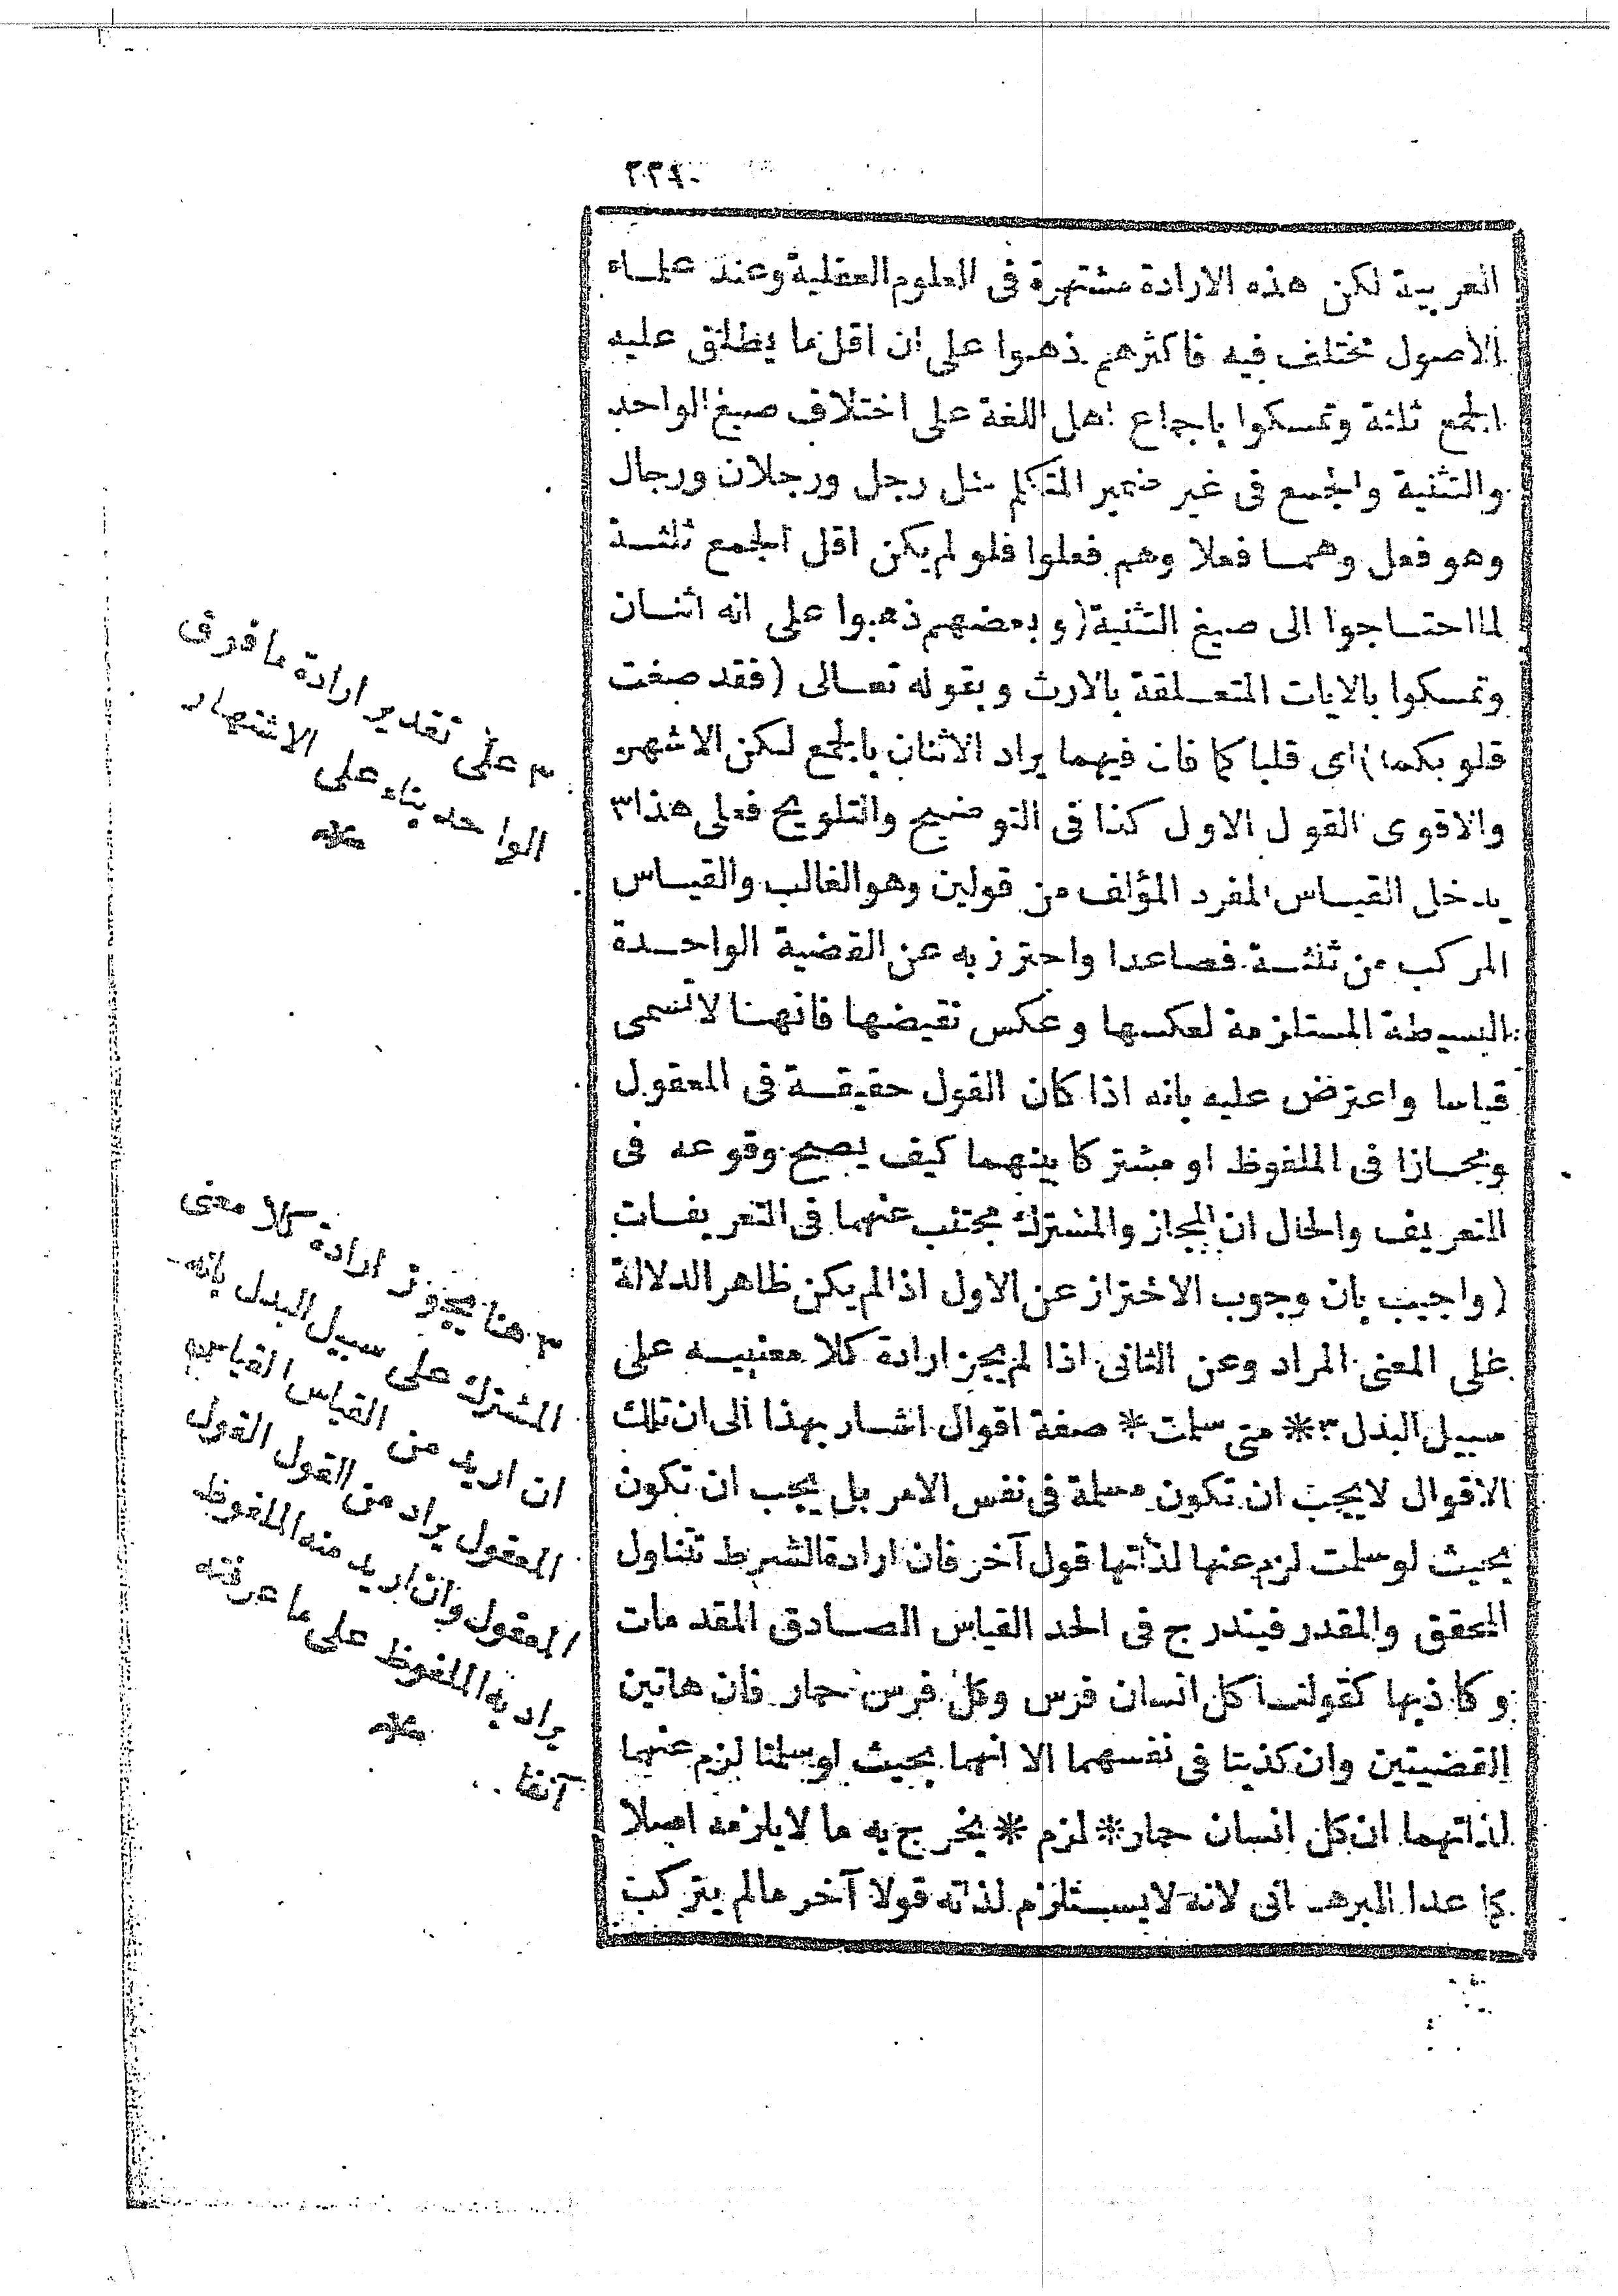 العربية لكن هذه الارادة مشتهرة فى العلوم العقلية وعند علماء
الاصول مختلف فيه فاكثرهم ذهبوا على ان اقل ما يطلق عليه
الجمع ثلثة وتمسكوا باجماع اهل اللغة على اختلاف صيغ الواحد
والتثنية والجمع فى غير ضمير المتكلم مثل رجل ورجلان ورجال
وهو فعل وهما فعلا وهم فعلوا فلو لم يكن اقل الجمع ثلثة
لما احتاجوا الى صيغ التثنية (وبعضهم ذهبوا على انه اثنان
وتمسكوا بالايات المتعلقة بالارث وبقوله تعالى (فقد صغت
قلوبكما) اى قلباكما فان فيهما يراد الاثنان بالجمع لكن الاشهر
والاقوى القول الاول كذا فى التوضيح والتلويح فعلى هذا ٣
يدخل القياس المفرد المؤلف من قولين وهو الغالب والقياس
المركب من ثلثة فصاعدا واحترز به عن القضية الواحدة
البسيطة المستلزمة لعكسها وعكس نقيضها فانها لا تسمى
قياسا واعترض عليه بانه اذا كان القول حقيقة فى المعقول
ومجازا فى الملفوظ او مشتركا بينهما كيف يصح وقوعه فى
التعريف والحال ان المجاز والمشترك مجتنب عنهما فى التعريفات
(واجيب بان وجوب الاحتراز عن الاول اذا لم يكن ظاهر الدلالة
على المعنى المراد وعن الثانى اذا لم يجز ارادة كلا معنييه على
سبيل البدل ٣ * متى سلمت * صفة اقوال اشار بهذا الى ان تلك
الاقوال لا يجب ان تكون مسلمة فى نفس الامر بل يجب ان تكون
بحيث لو سلمت لزم عنها لذاتها قول آخر فان ارادة الشرط تتناول
المحقق والمقدر فيندرج فى الحد القياس الصادق المقدمات
وكاذبها كقولنا كل انسان فرس وكل فرس حمار فان هاتين
القضيتين وان كذبتا فى نفسهما الا انهما بحيث لو سلمتا لزم عنهما
لذاتهما ان كل انسان حمار * لزم * يخرج به ما لا يلزمه اصلا
كما عدا البرهانى لانه لا يستلزم لذاته قولا آخر ما لم يتركب
٣ على تقدير ارادة ما فوق
الواحد بناء على الاشتهار
٣ هنا يجوز ارادة كلا معنى
المشترك على سبيل البدل بانه
ان اريد من القياس القياس
المعقول يراد من القول القول
المعقول وان اريد منه الملفوظ
يراد به الملفوظ على ما عرفته
آنفا